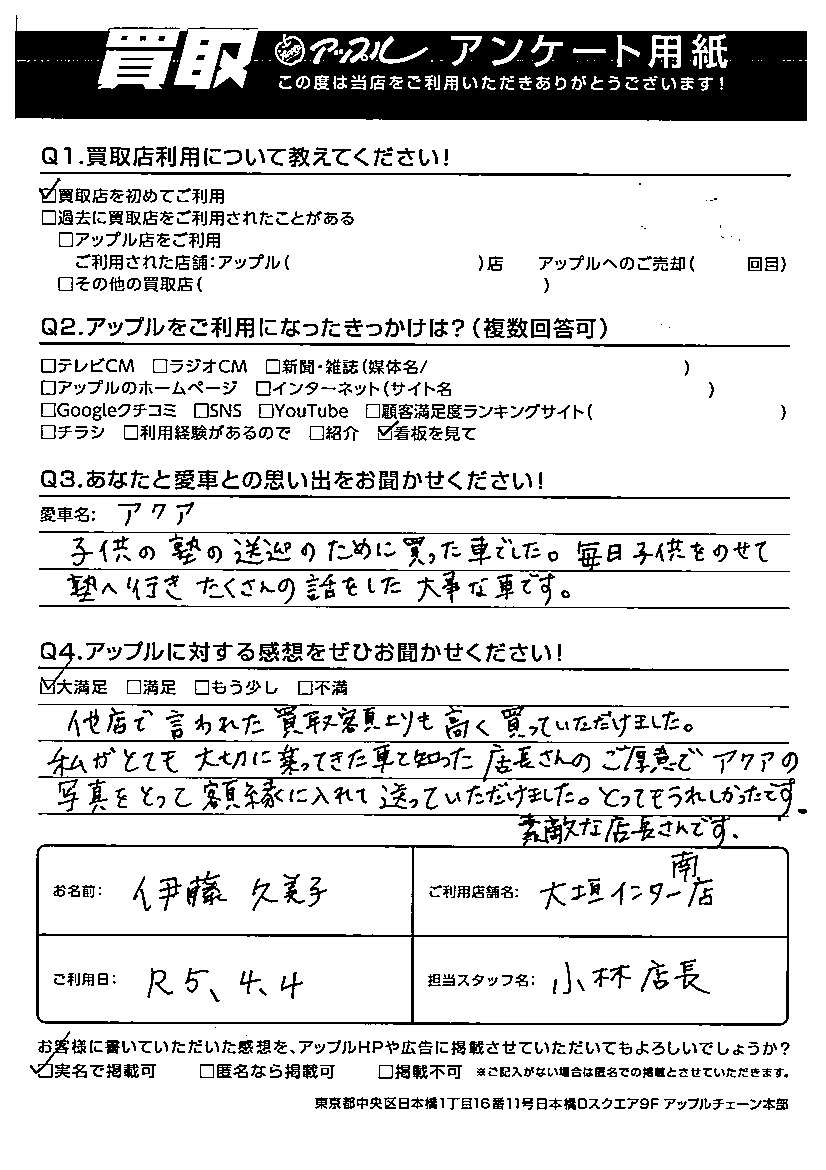 買取 アップル アンケート用紙
この度は当店をご利用いただきありがとうございます!
Q1.買取店利用について教えてください!
☑買取店を初めてご利用
□過去に買取店をご利用されたことがある
□アップル店をご利用
ご利用された店舗:アップル( )店 アップルへのご売却( 回目)
□その他の買取店( )
Q2.アップルをご利用になったきっかけは?(複数回答可)
□テレビCM □ラジオCM □新聞・雑誌(媒体名/ )
□アップルのホームページ □インターネット(サイト名 )
□Googleクチコミ □SNS □YouTube □顧客満足度ランキングサイト( )
□チラシ □利用経験があるので □紹介 ☑看板を見て
Q3.あなたと愛車との思い出をお聞かせください!
愛車名: アクア
子供の塾の送迎のために買った車でした。毎日子供をのせて
塾へ行きたくさんの話をした大事な車です。
Q4.アップルに対する感想をぜひお聞かせください!
☑大満足 □満足 □もう少し □不満
他店で言われた買取額よりも高く買っていただけました。
私がとても大切に乗ってきた車と知った店長さんのご厚意でアクアの
写真をとって額縁に入れて送っていただけました。とってもうれしかったです。
素敵な店長さんです。
お名前: 伊藤 久美子
ご利用店舗名: 大垣インター南店
ご利用日: R5、4、4
担当スタッフ名: 小林店長
お客様に書いていただいた感想を、アップルHPや広告に掲載させていただいてもよろしいでしょうか?
☑実名で掲載可 □匿名なら掲載可 □掲載不可 ※ご記入がない場合は匿名での掲載とさせていただきます。
東京都中央区日本橋1丁目16番11号日本橋Dスクエア9F アップルチェーン本部